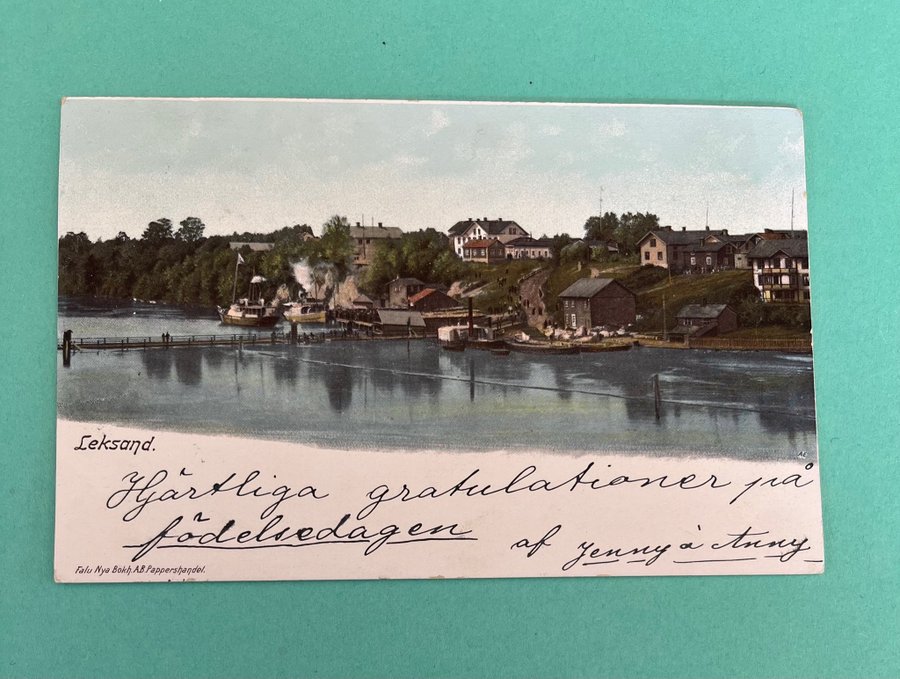 Leksand.
Hjärtliga gratulationer på
födelsedagen af Jenny å Anny
Falu Nya Bokh. A.B. Pappershandel.